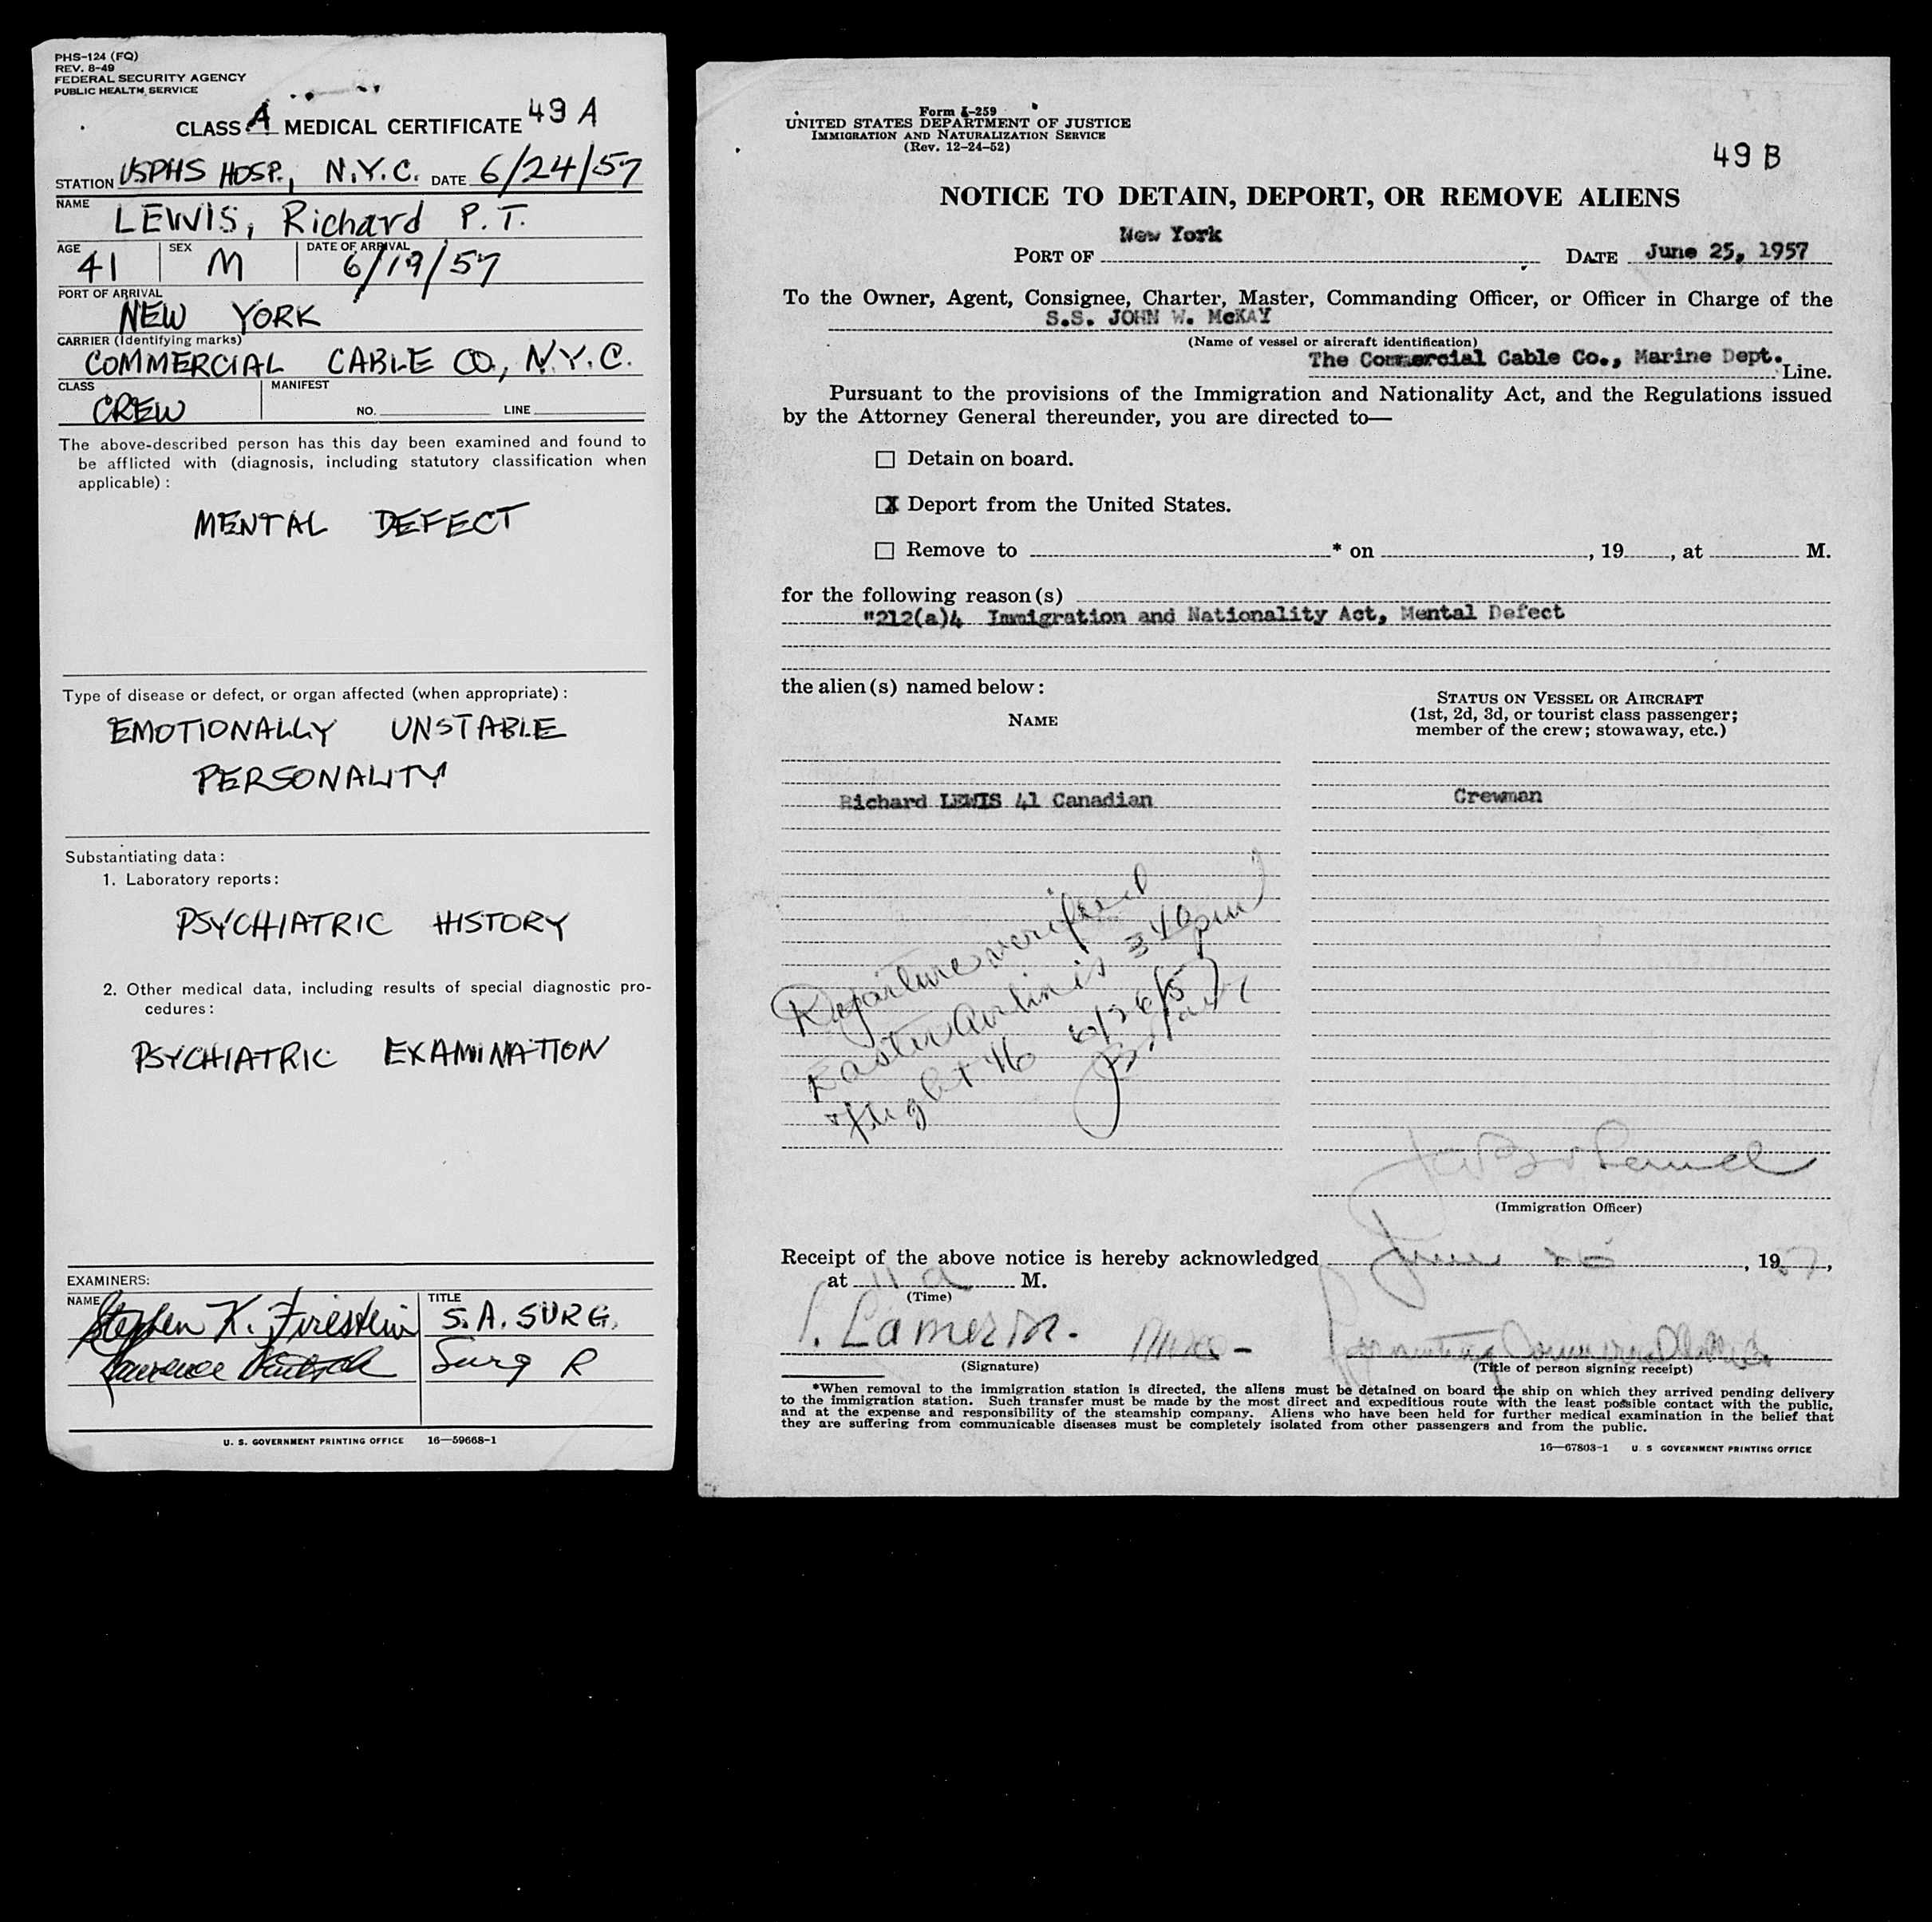 PHS-124 (FQ)
REV. 8-49
FEDERAL SECURITY AGENCY
PUBLIC HEALTH SERVICE
CLASS A MEDICAL CERTIFICATE 49 A
STATION USPHS HOSP., N.Y.C. DATE 6/24/57
NAME
LEWIS, Richard P. T.
AGE SEX DATE OF ARRIVAL
41 M 6/19/57
PORT OF ARRIVAL
NEW YORK
CARRIER (Identifying marks)
COMMERCIAL CABLE CO., N.Y.C.
CLASS MANIFEST
CREW NO. LINE
The above-described person has this day been examined and found to
be afflicted with (diagnosis, including statutory classification when
applicable) :
MENTAL DEFECT
Type of disease or defect, or organ affected (when appropriate) :
EMOTIONALLY UNSTABLE
PERSONALITY
Substantiating data :
1. Laboratory reports :
PSYCHIATRIC HISTORY
2. Other medical data, including results of special diagnostic pro-
cedures :
PSYCHIATRIC EXAMINATION
EXAMINERS:
NAME TITLE
Stephen K. Firestein S.A. SURG.
Lawrence Surg R
U. S. GOVERNMENT PRINTING OFFICE 16—59668-1
Form I-259
UNITED STATES DEPARTMENT OF JUSTICE
IMMIGRATION AND NATURALIZATION SERVICE
(Rev. 12-24-52)
49 B
NOTICE TO DETAIN, DEPORT, OR REMOVE ALIENS
PORT OF New York DATE June 25, 1957
To the Owner, Agent, Consignee, Charter, Master, Commanding Officer, or Officer in Charge of the
S.S. JOHN W. McKAY
(Name of vessel or aircraft identification)
The Commercial Cable Co., Marine Dept. Line.
Pursuant to the provisions of the Immigration and Nationality Act, and the Regulations issued
by the Attorney General thereunder, you are directed to—
Detain on board.
X Deport from the United States.
Remove to * on , 19 , at M.
for the following reason(s)
"212(a)4 Immigration and Nationality Act, Mental Defect
the alien(s) named below :
NAME
STATUS ON VESSEL OR AIRCRAFT
(1st, 2d, 3d, or tourist class passenger;
member of the crew; stowaway, etc.)
Richard LEWIS 41 Canadian Crewman
Departure verified
Eastern Airlines 340pm
flight 46 6/26/57
(Immigration Officer)
Receipt of the above notice is hereby acknowledged June 25, 1957,
at 11 a M.
(Time)
(Signature)
(Title of person signing receipt)
*When removal to the immigration station is directed, the aliens must be detained on board the ship on which they arrived pending delivery
to the immigration station. Such transfer must be made by the most direct and expeditious route with the least possible contact with the public,
and at the expense and responsibility of the steamship company. Aliens who have been held for further medical examination in the belief that
they are suffering from communicable diseases must be completely isolated from other passengers and from the public.
16—67803-1 U. S GOVERNMENT PRINTING OFFICE